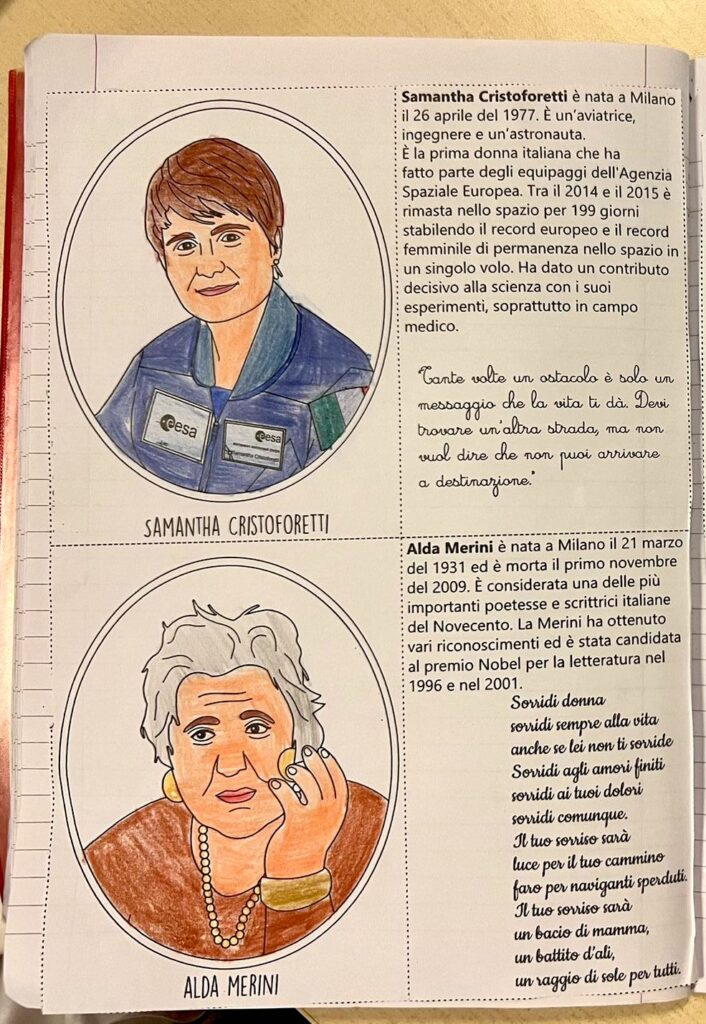 Samantha Cristoforetti è nata a Milano
il 26 aprile del 1977. È un'aviatrice,
ingegnere e un'astronauta.
È la prima donna italiana che ha
fatto parte degli equipaggi dell'Agenzia
Spaziale Europea. Tra il 2014 e il 2015 è
rimasta nello spazio per 199 giorni
stabilendo il record europeo e il record
femminile di permanenza nello spazio in
un singolo volo. Ha dato un contributo
decisivo alla scienza con i suoi
esperimenti, soprattutto in campo
medico.
"Tante volte un ostacolo è solo un
messaggio che la vita ti dà. Devi
trovare un'altra strada, ma non
vuol dire che non puoi arrivare
a destinazione."
esa
esa
Samantha Cristoforetti
SAMANTHA CRISTOFORETTI
Alda Merini è nata a Milano il 21 marzo
del 1931 ed è morta il primo novembre
del 2009. È considerata una delle più
importanti poetesse e scrittrici italiane
del Novecento. La Merini ha ottenuto
vari riconoscimenti ed è stata candidata
al premio Nobel per la letteratura nel
1996 e nel 2001.
Sorridi donna
sorridi sempre alla vita
anche se lei non ti sorride
Sorridi agli amori finiti
sorridi ai tuoi dolori
sorridi comunque.
Il tuo sorriso sarà
luce per il tuo cammino
faro per naviganti sperduti.
Il tuo sorriso sarà
un bacio di mamma,
un battito d'ali,
un raggio di sole per tutti.
ALDA MERINI